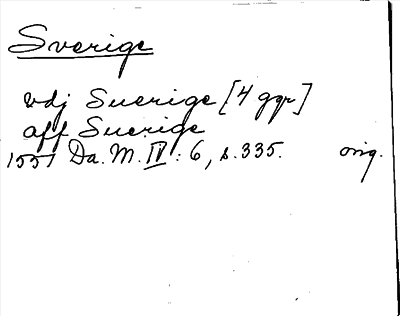 Sverige
vdj Suerige [4 ggr]
aff Suerige
1551 Da. M. IV: 6, s. 335. orig.